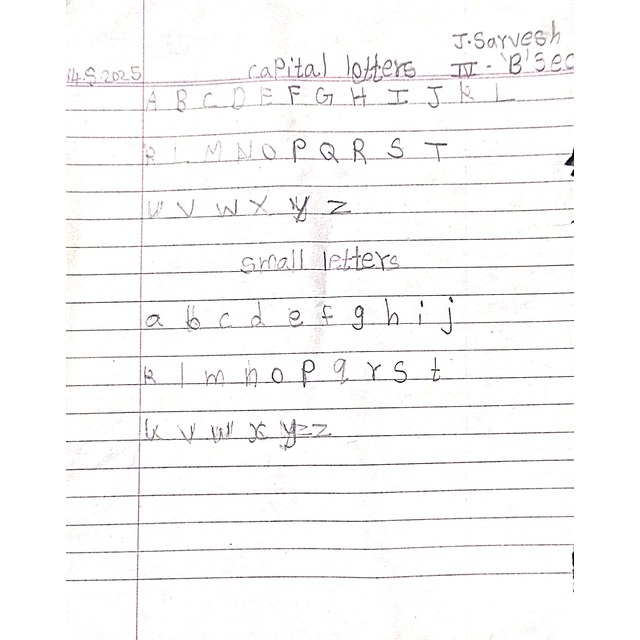 J.Sarvesh
14.8.2025 capital lotters IV - 'B' Sec
A B C D E F G H I J K L
K L M N O P Q R S T
U V W X Y Z
small letters
a b c d e f g h i j
k l m n o p q r s t
u v w x y z z